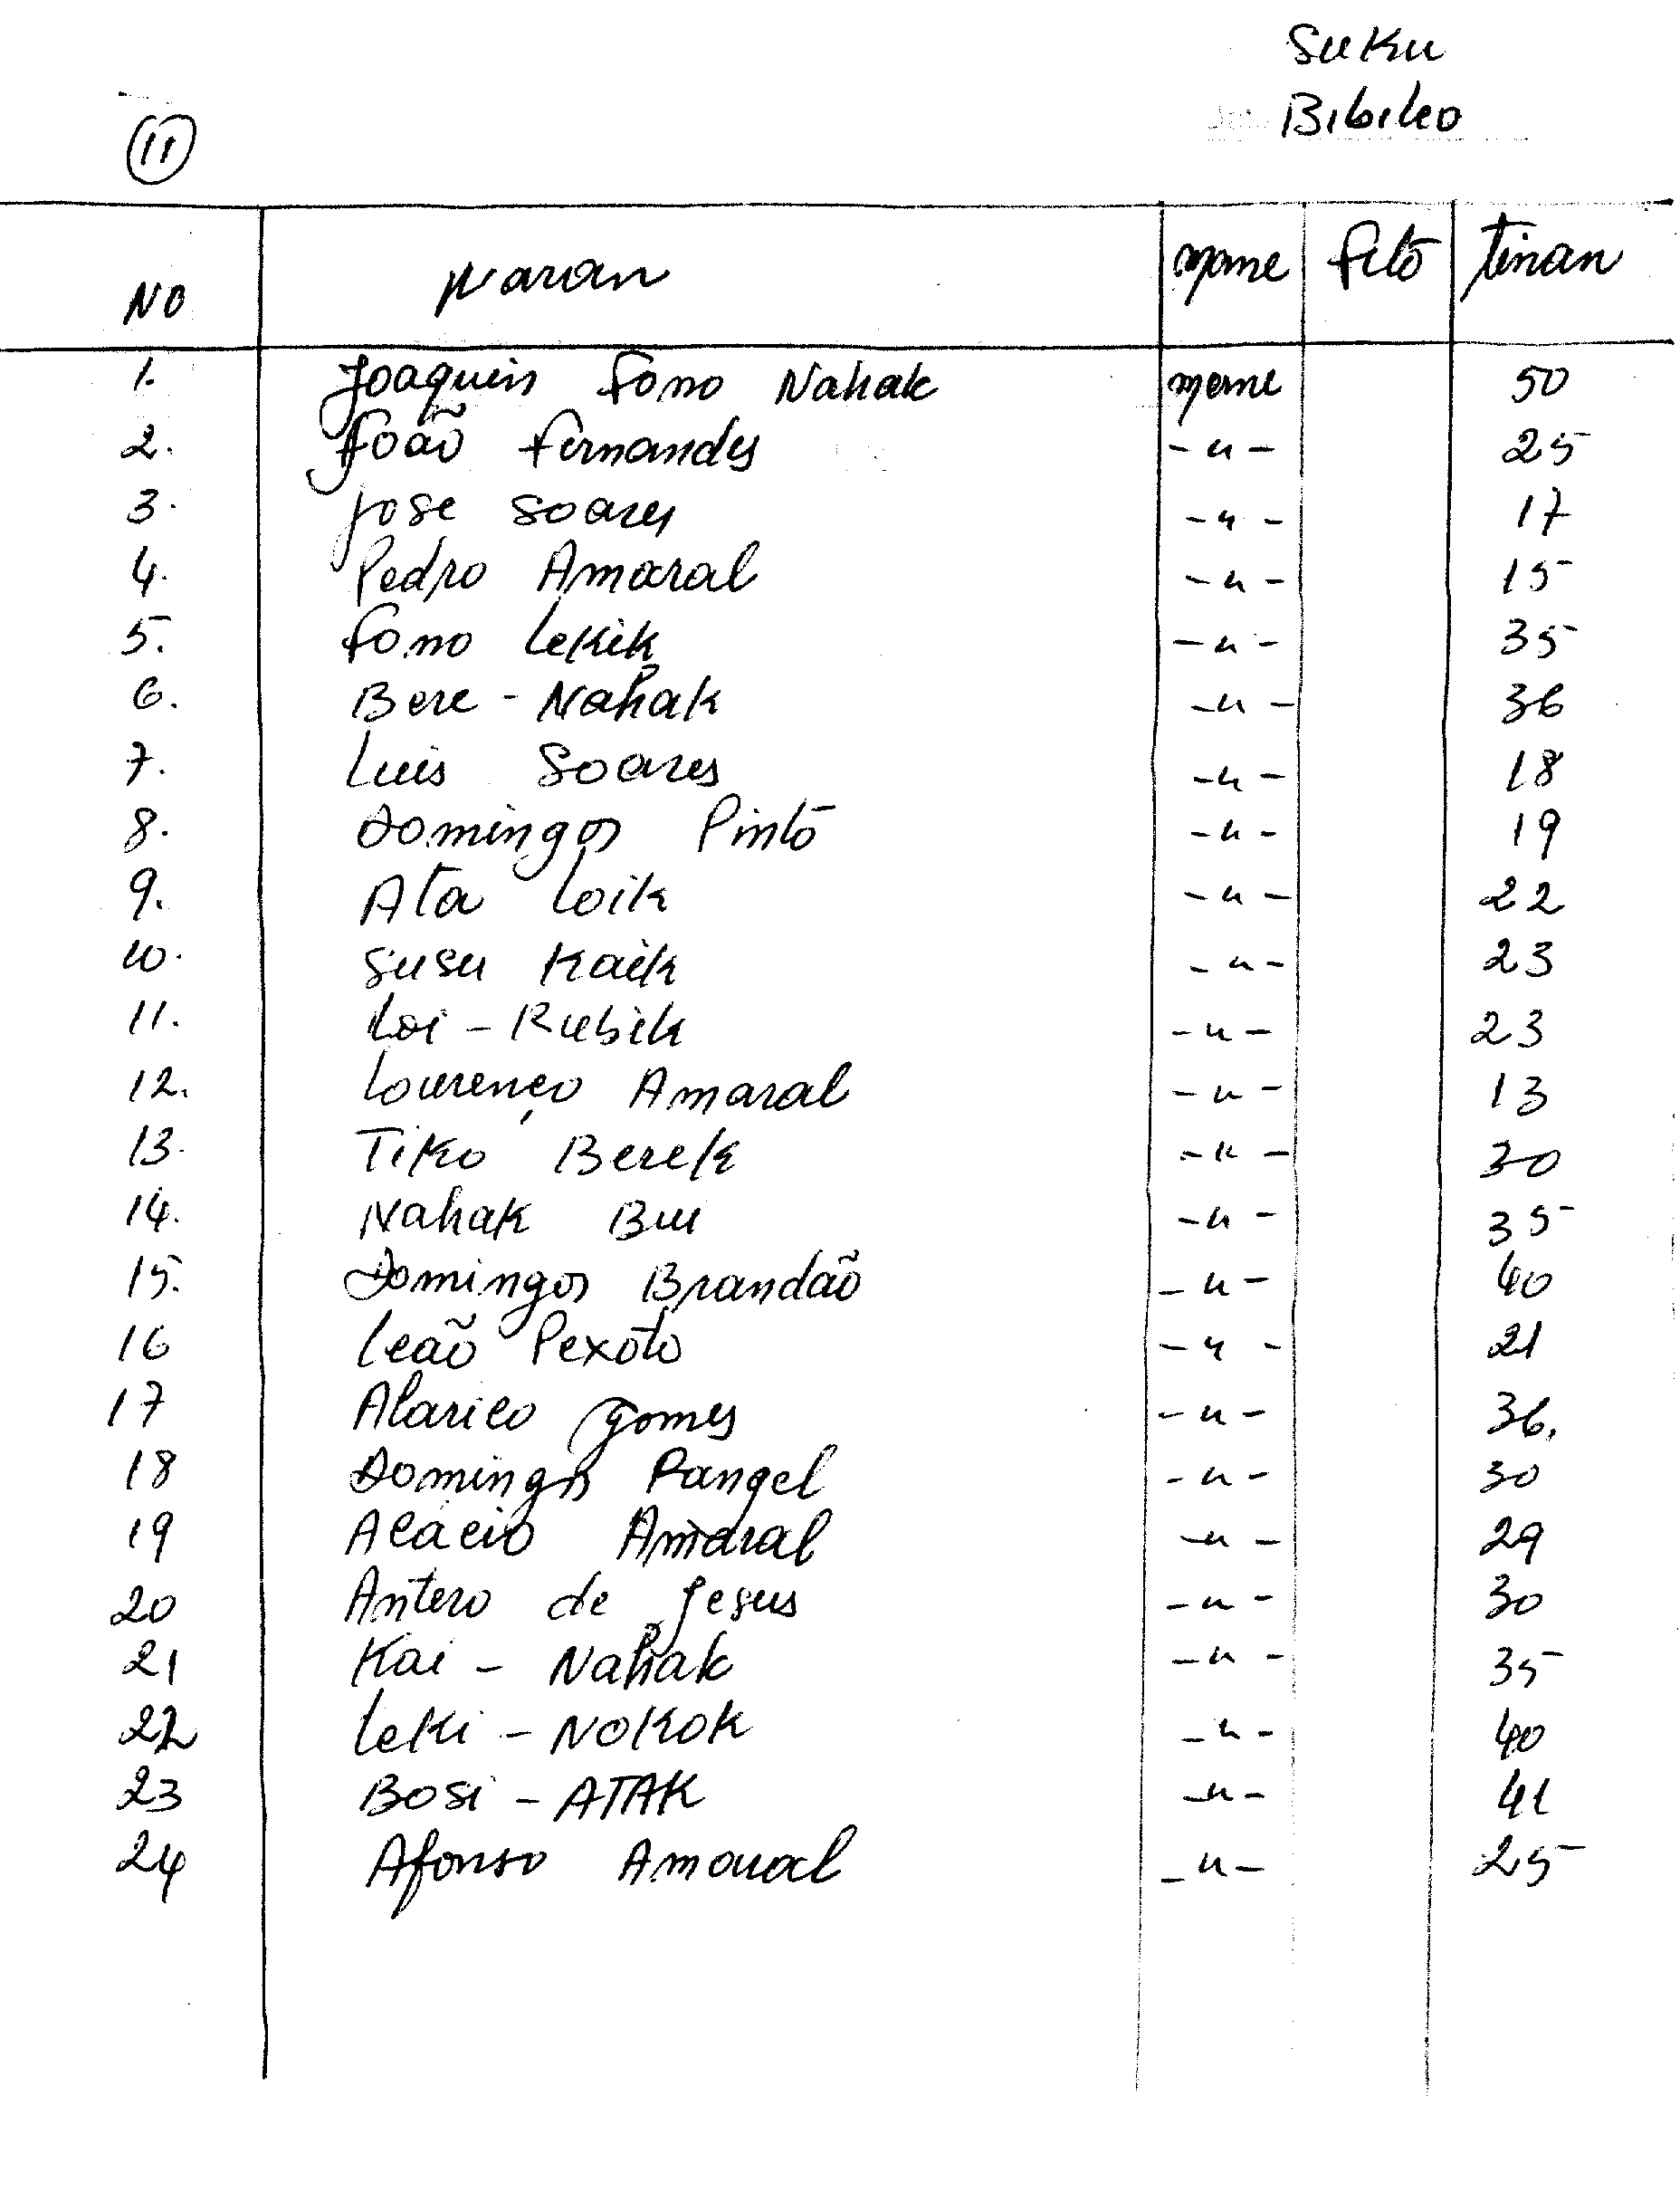 Suku
Bibileo
11
NO Naran mane feto tinan
1. Joaquim Fono Nahak mane 50
2. João Fernandes -"- 25
3. Jose Soares -"- 17
4. Pedro Amaral -"- 15
5. Fono Lekik -"- 35
6. Bere - Nahak -"- 36
7. Luis Soares -"- 18
8. Domingos Pinto -"- 19
9. Ata Loik -"- 22
10. Susu Kaik -"- 23
11. Loi - Rubik -"- 23
12. Lourenço Amaral -"- 13
13. Tiko Berek -"- 30
14. Nahak Bui -"- 35
15. Domingos Brandão -"- 40
16 Leão Pexoto -"- 21
17 Alarico Gomes -"- 36.
18 Domingos Rangel -"- 30
19 Acácio Amaral -"- 29
20 Antero de Jesus -"- 30
21 Kai - Nahak -"- 35
22 Leki - NOKOK -"- 40
23 Bosi - ATAK -"- 41
24 Afonso Amaral -"- 25